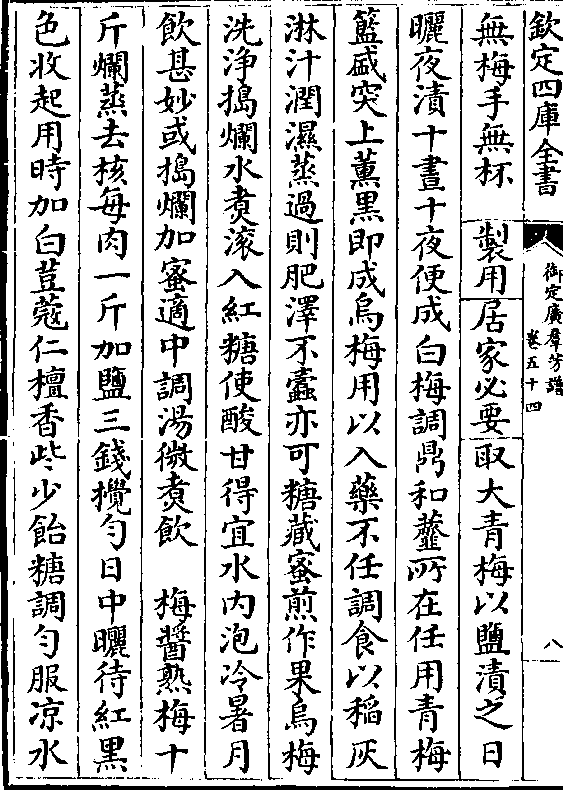 欽定四庫全書
御定廣羣芳譜
卷五十四
八
無梅手無杯　製用　居家必要　取大青梅以鹽漬之日
曬夜漬十晝十夜便成白梅調鼎和虀所在任用青梅
籃盛突上薰黑即成烏梅用以入藥不任調食以稻灰
淋汁潤濕蒸過則肥澤不蠧亦可糖藏蜜煎作果烏梅
洗浄搗爛水煑滚入紅糖使酸甘得宜水内泡冷暑月
飲甚妙或搗爛加蜜適中調湯微煑飲　梅醬熟梅十
斤爛蒸去核每肉一斤加鹽三錢攪匀日中曬待紅黑
色收起用時加白荳蔻仁檀香些少飴糖調匀服凉水